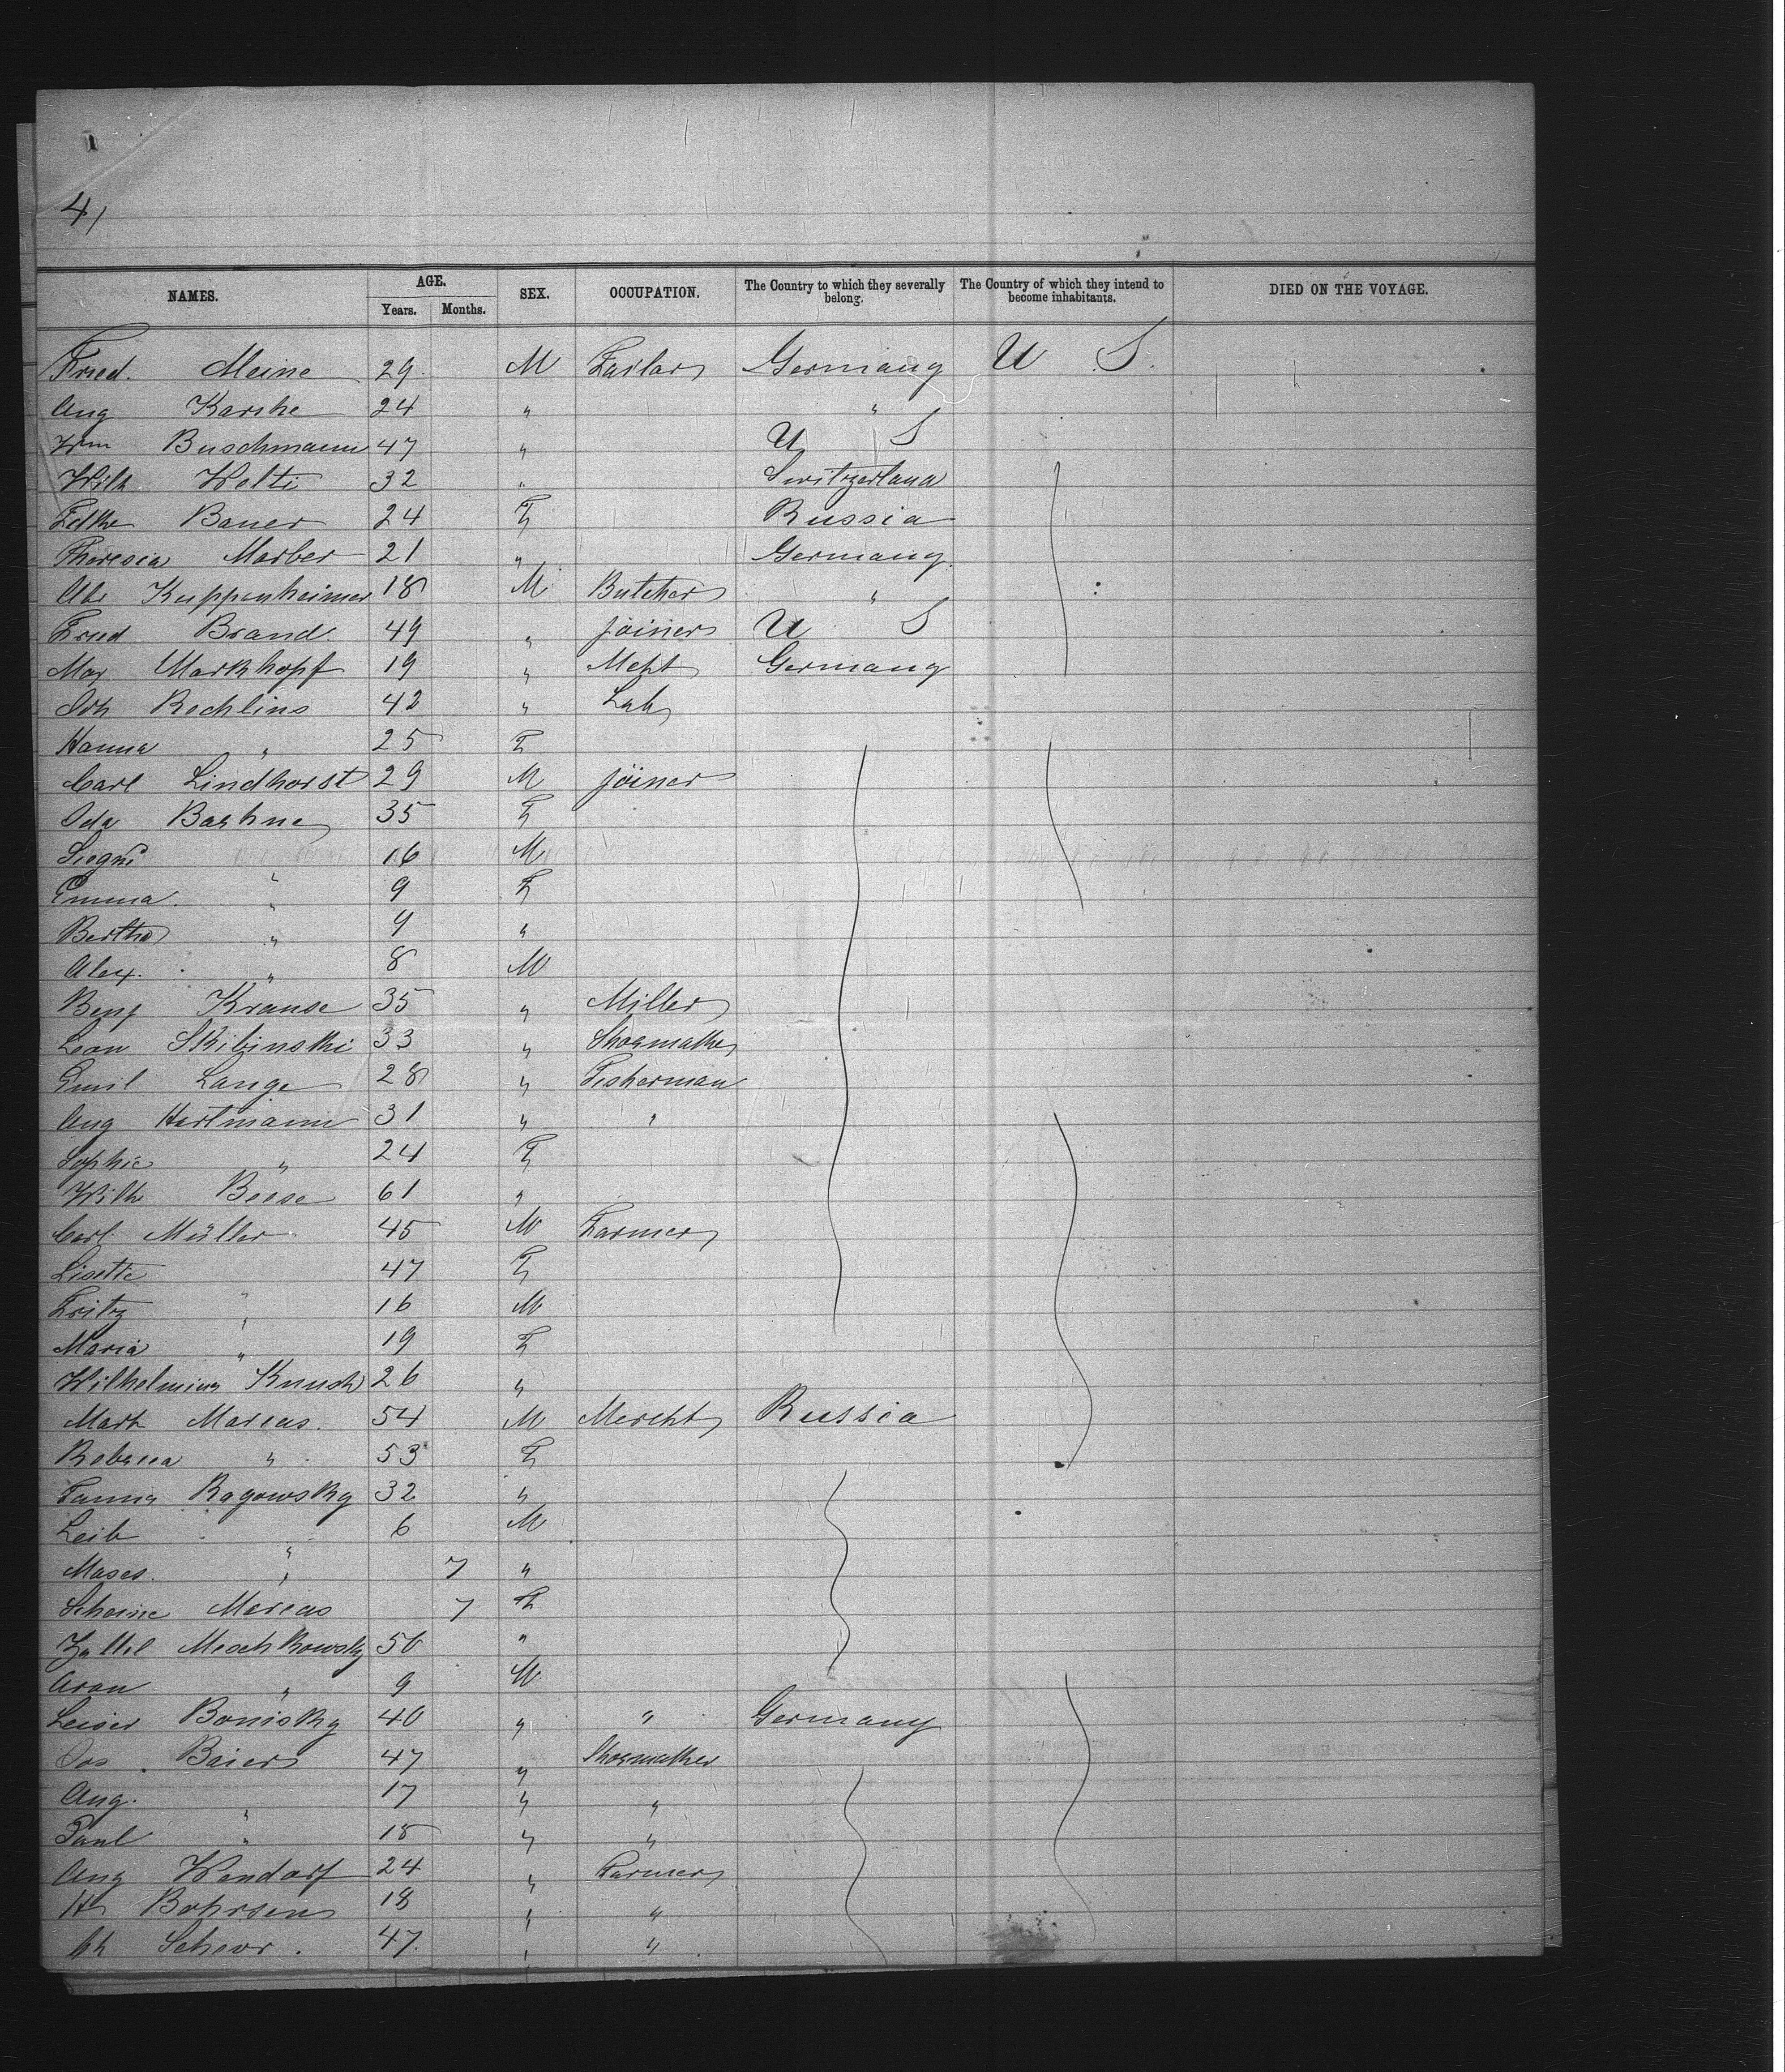 4/
NAMES. AGE. Years. Months. SEX. OCCUPATION. The Country to which they severally belong. The Country of which they intend to become inhabitants. DIED ON THE VOYAGE.
Fried. Meine 29 M Tailor Germany U S.
Aug Karshe 24 " "
Wm Buschmann 47 " U S
Wilh Welti 32 " Switzerland
Edke Bauer 24 F Russia
Theresia Marber 21 " Germany
Abr Kuppenheimer 18 M Butcher "
Fried Brand 49 " joiner U S
Max Markhopf 19 " Mcht Germany
Joh Rechlins 42 " Lab
Hanna " 25 F
Carl Lindhorst 29 M joiner
Ida Baehne 35 F
16 M
Emma " 9 F
Bertha " 9 "
Alex. " 8 M
Benj Krause 35 " Miller
Leon Skibinski 33 " Shoemaker
Emil Lange 28 " Fisherman
Aug Hartmann 31 " "
Sophie " 24 F
Wilh Beese 61 "
Carl Müller 45 M Farmer
Lisette " 47 F
Fritz " 16 M
Maria " 19 F
Wilhelmine Knush 26 "
Mark Marcus. 54 M Mercht Russia
Rebecca " 53 F
Fanny Ragowsky 32 "
Leib " 6 M
Moses. " 7 "
Scheine Marcus 7 F
Meschkowsky 50 "
Aron " 9 M
Leiser Bonisky 40 " " Germany
Jos. Baier 47 " Shoemaker
Aug. " 17 " "
Paul " 15 " "
Aug Wendorf 24 " Farmer
H Bohrsen 18 " "
Ch Scheor. 47. " "